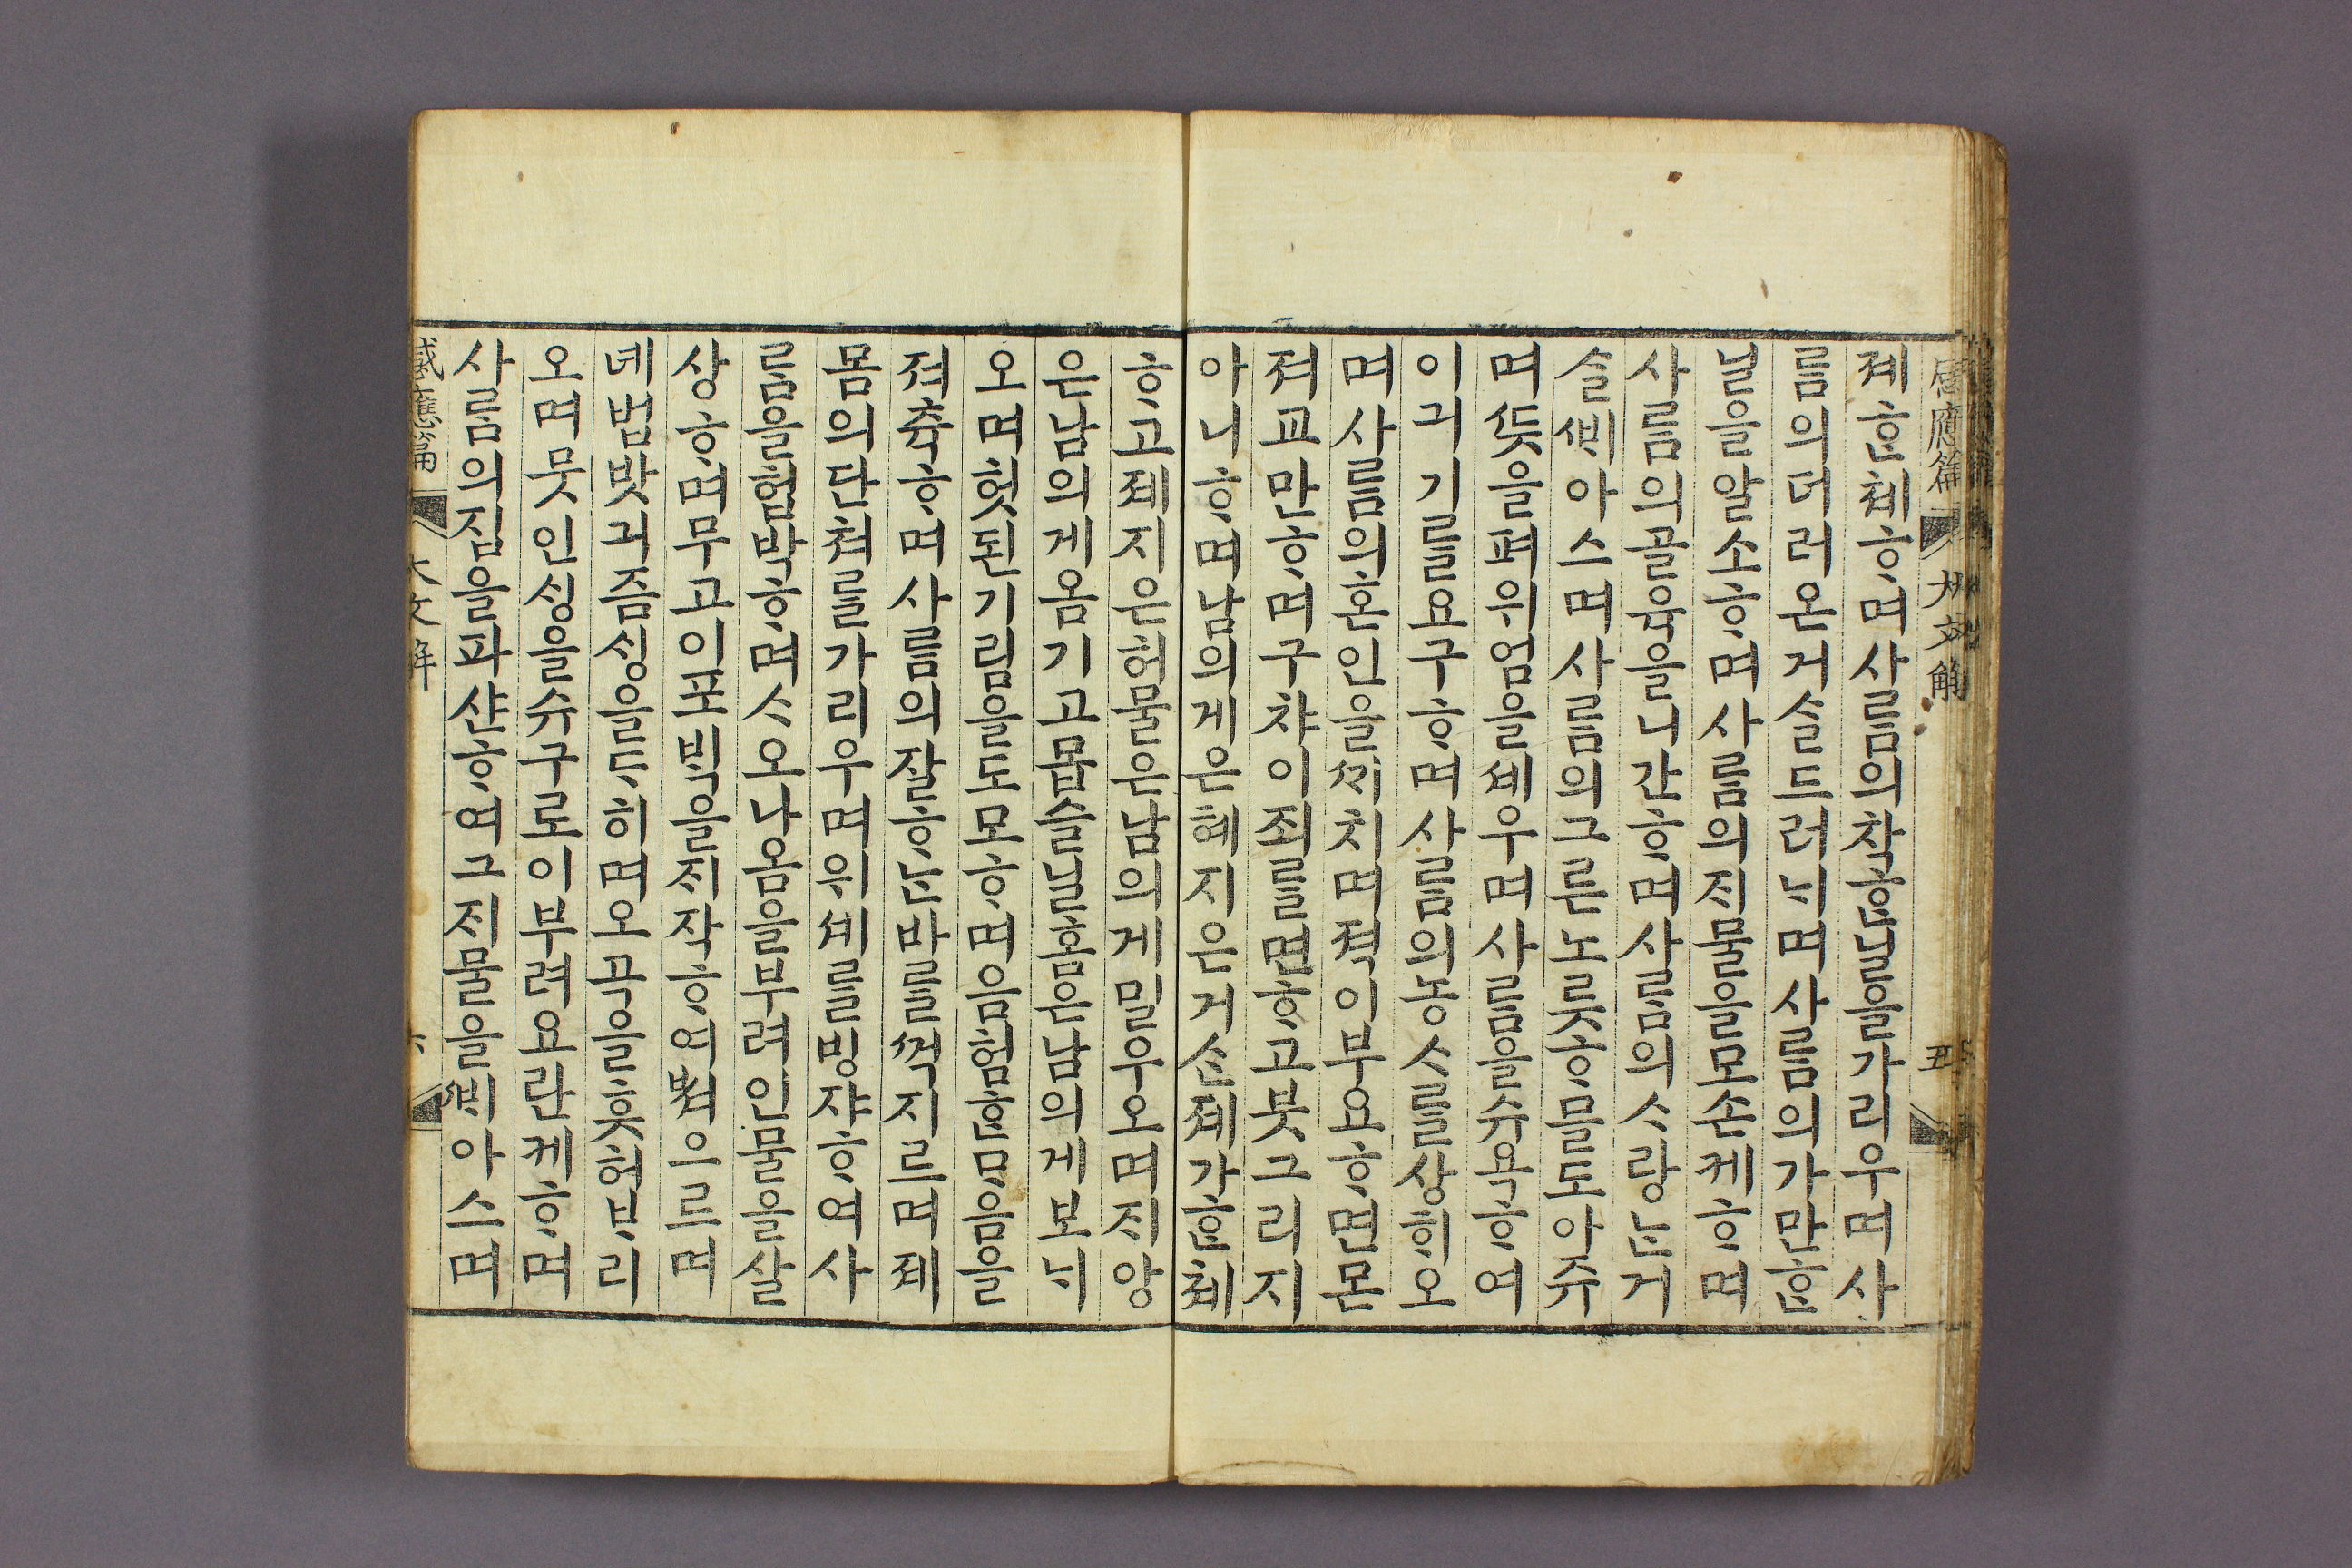 感應篇 大文解 五
졔ᄒᆞᆫ쳬ᄒᆞ며사ᄅᆞᆷ의착ᄒᆞᆫ닐을가리우며사
ᄅᆞᆷ의더러온거ᄉᆞᆯ드러ᄂᆡ며사ᄅᆞᆷ의가만ᄒᆞᆫ
닐을알소ᄒᆞ며사ᄅᆞᆷ의ᄌᆡ물을모손케ᄒᆞ며
사ᄅᆞᆷ의골육을니간ᄒᆞ며사ᄅᆞᆷ의ᄉᆞ랑ᄂᆞᆫ거
ᄉᆞᆯᄲᆡ아스며사ᄅᆞᆷ의그른노ᄅᆞᆺᄒᆞ믈도아쥬
며ᄯᅳᆺ을펴위엄을셰우며사ᄅᆞᆷ을슈욕ᄒᆞ여
이긔기ᄅᆞᆯ요구ᄒᆞ며사ᄅᆞᆷ의농ᄉᆞᄅᆞᆯ상ᄒᆡ오
며사ᄅᆞᆷ의혼인을ᄭᆡ치며젹이부요ᄒᆞ면몬
져교만ᄒᆞ며구챠이죄ᄅᆞᆯ면ᄒᆞ고붓그리지
아니ᄒᆞ며남의게은혜지은거ᄉᆞᆫ졔가ᄒᆞᆫ쳬
ᄒᆞ고졔지은허물은남의게밀우오며ᄌᆡ앙
은남의게옴기고몹ᄉᆞᆯ일홈은남의게ᄑᆞᄂᆡ
오며헛된기림을도모ᄒᆞ며음험ᄒᆞᆫᄆᆞ음을
져츅ᄒᆞ며사ᄅᆞᆷ의잘ᄒᆞᄂᆞᆫ바ᄅᆞᆯᄭᅥᆨ지르며졔
몸의단쳐ᄅᆞᆯ가리우며위셰ᄅᆞᆯ핑쟈ᄒᆞ여사
ᄅᆞᆷ을협박ᄒᆞ며ᄉᆞ오나옴을부려인물을살
상ᄒᆞ며무고이뵈필을ᄌᆡ작ᄒᆞ며
즘ᄉᆡᆼ을 오곡을훗허ᄇᆞ리
오며못인ᄉᆡᆼ을슈구로이부려요란케ᄒᆞ며
사ᄅᆞᆷ의집을파산ᄒᆞ여그ᄌᆡ물을ᄲᆡ아시며
感應篇 大文解 六